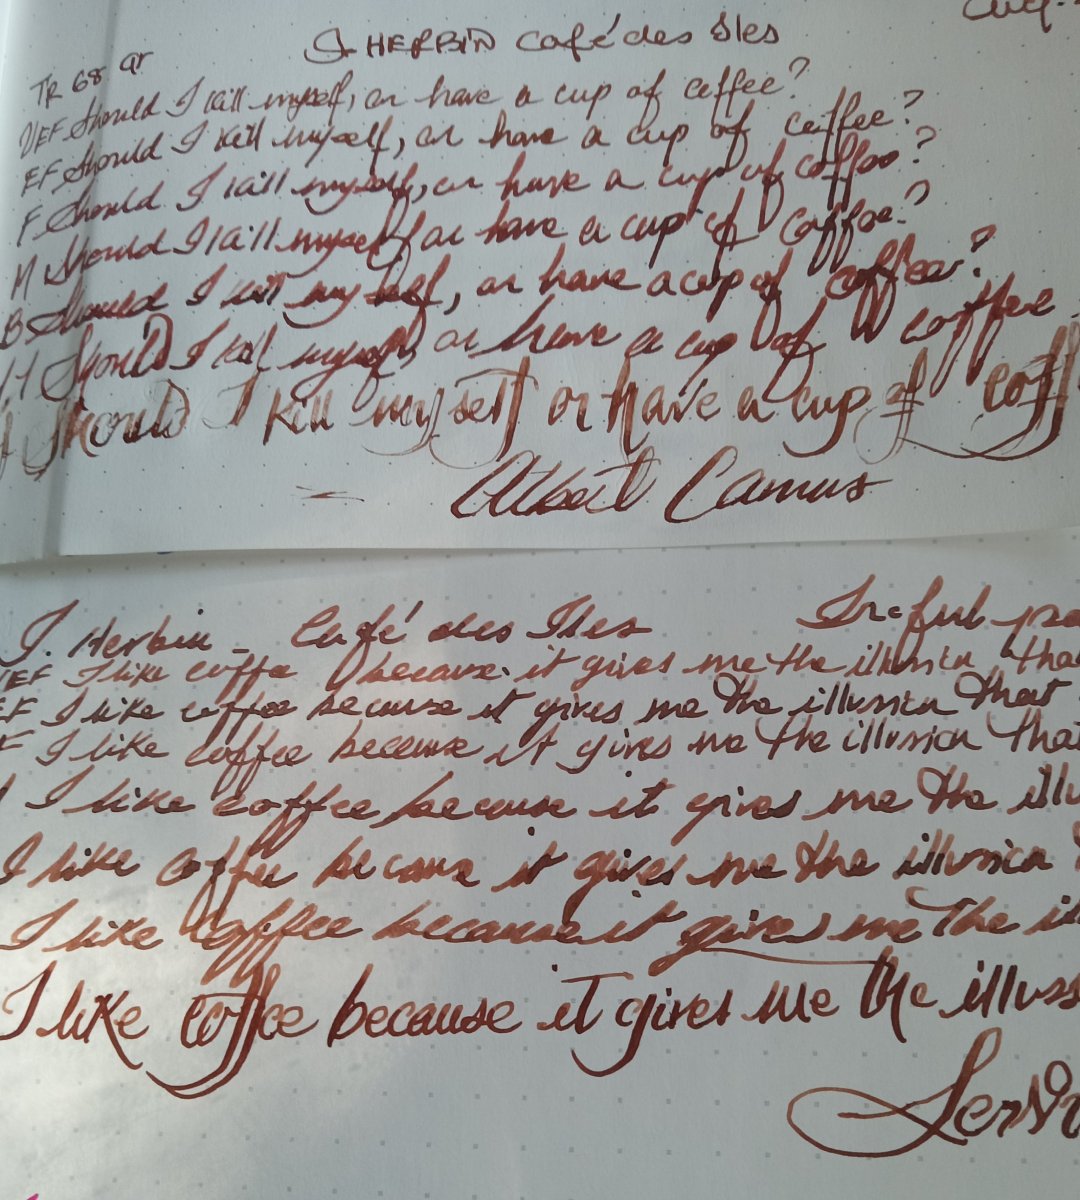 J. HERBIN Café des Iles
TR 68 gr
UEF Should I kill myself, or have a cup of coffee?
EF Should I kill myself, or have a cup of coffee?
F Should I kill myself, or have a cup of coffee?
M Should I kill myself or have a cup of coffee?
B Should I kill myself, or have a cup of coffee?
Should I kill myself or have a cup of coffee
Should I kill myself or have a cup of coff
Albert Camus
J. Herbin - Café des Iles
UEF I like coffe because it gives me the illusion that
EF I like coffee because it gives me the illusion that
F I like coffee because it gives me the illusion that
I like coffee because it gives me the illu
I like coffee because it gives me the illusion
I like coffee because it gives me the il
I like coffee because it gives me the illus